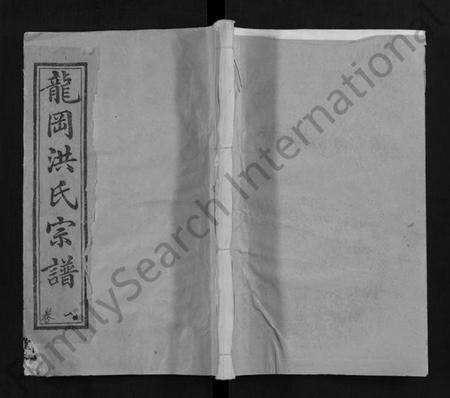 龍岡洪氏宗譜
卷一
FamilySearch International